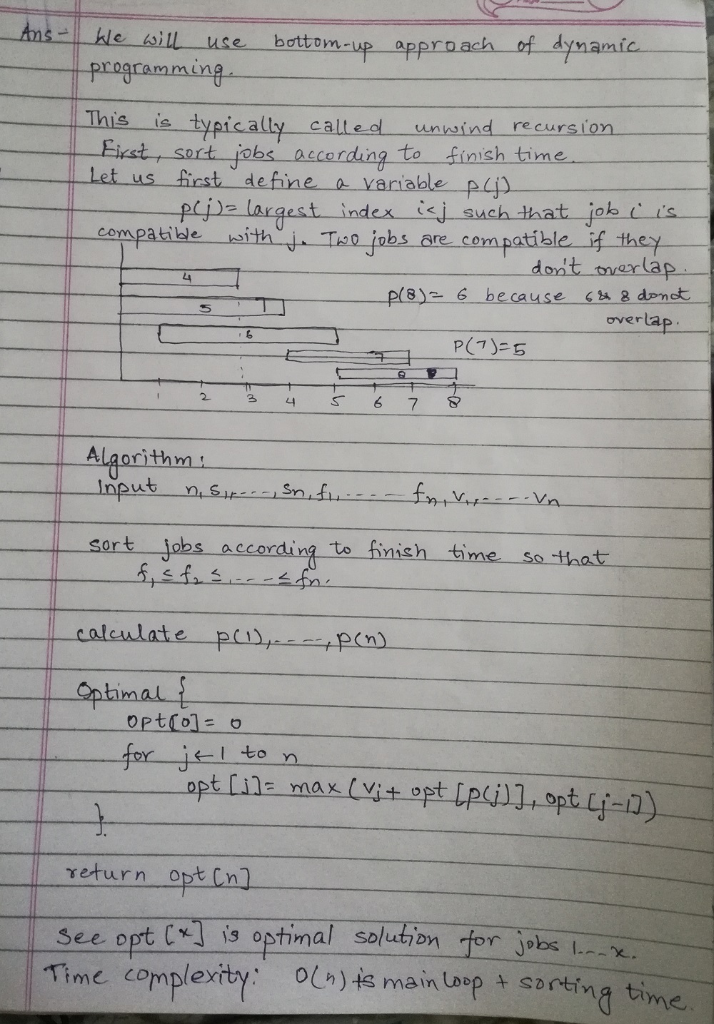 Ans- We will use bottom-up approach of dynamic
programming.
This is typically called unwind recursion
First, sort jobs according to finish time.
Let us first define a variable p(j)
p(j) = largest index i<j such that job i is
compatible with j. Two jobs are compatible if they
don't overlap.
4
p(8) = 6 because 6 & 8 donot
overlap.
5
6
p(7)=5
7
8
1 2 3 4 5 6 7 8
Algorithm:
Input n, s1, ----, sn, f1, ---- fn, v1, ---- vn
sort jobs according to finish time so that
f1 ≤ f2 ≤ ---- ≤ fn.
calculate p(1), ----, p(n)
Optimal {
opt[0] = 0
for j←1 to n
opt [j] = max (vj + opt [p(j)], opt [j-1])
}.
return opt [n]
See opt [x] is optimal solution for jobs 1---x.
Time complexity: O(n) is main loop + sorting time.